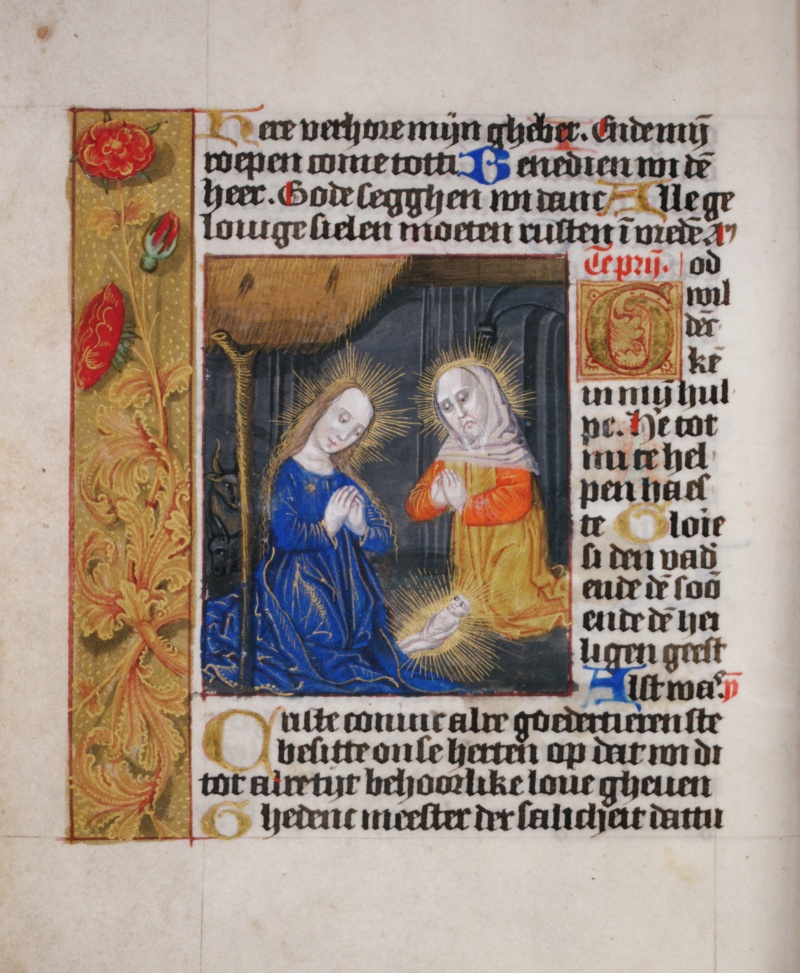 Here verhore mijn ghebet. Ende mijn̄
roepen come totti Benedien wi dē
heer. Gode segghen wi danc Alle ge
louige sielen moeten rusten ī vredē Am̄
Te prij̄. God
wil
dēc
kē
in mijn̄ hul
pe. He’e tot
mi te hel
pen haes
te Gloie
si den vad̄
ende dē soō
ende dē hei
ligen geest
Alst was. ȳ
Custe comme alre goedertierenste
besitte onse herten op dat wi di
tot alretijt behoorlike loue gheuen
Ghedenc meester der salicheit dattu